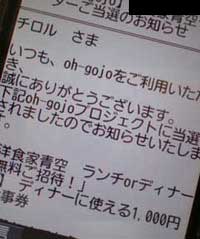 ご当選のお知らせ
チロル さま
いつも、oh-gojoをご利用いただ
き、
誠にありがとうございます。
下記oh-gojoプロジェクトに当選
されましたのでお知らせいたしま
す。
洋食家青空 ランチorディナー
無料ご招待！」
ディナーに使える1,000円
事券